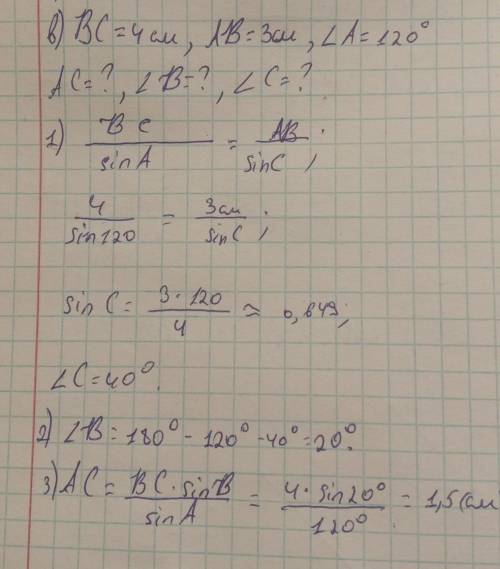 в) BC=4см, AB=3см, ∠A=120°
AC=?, ∠B=?, ∠C=?
1) BC/sinA = AB/sinC;
4/sin120 = 3см/sinC;
sin C = 3·120/4 ≈ 0,649;
∠C=40°.
2) ∠B=180°-120°-40°=20°.
3) AC = BC·sinB/sinA = 4·sin20°/120° = 1,5(см